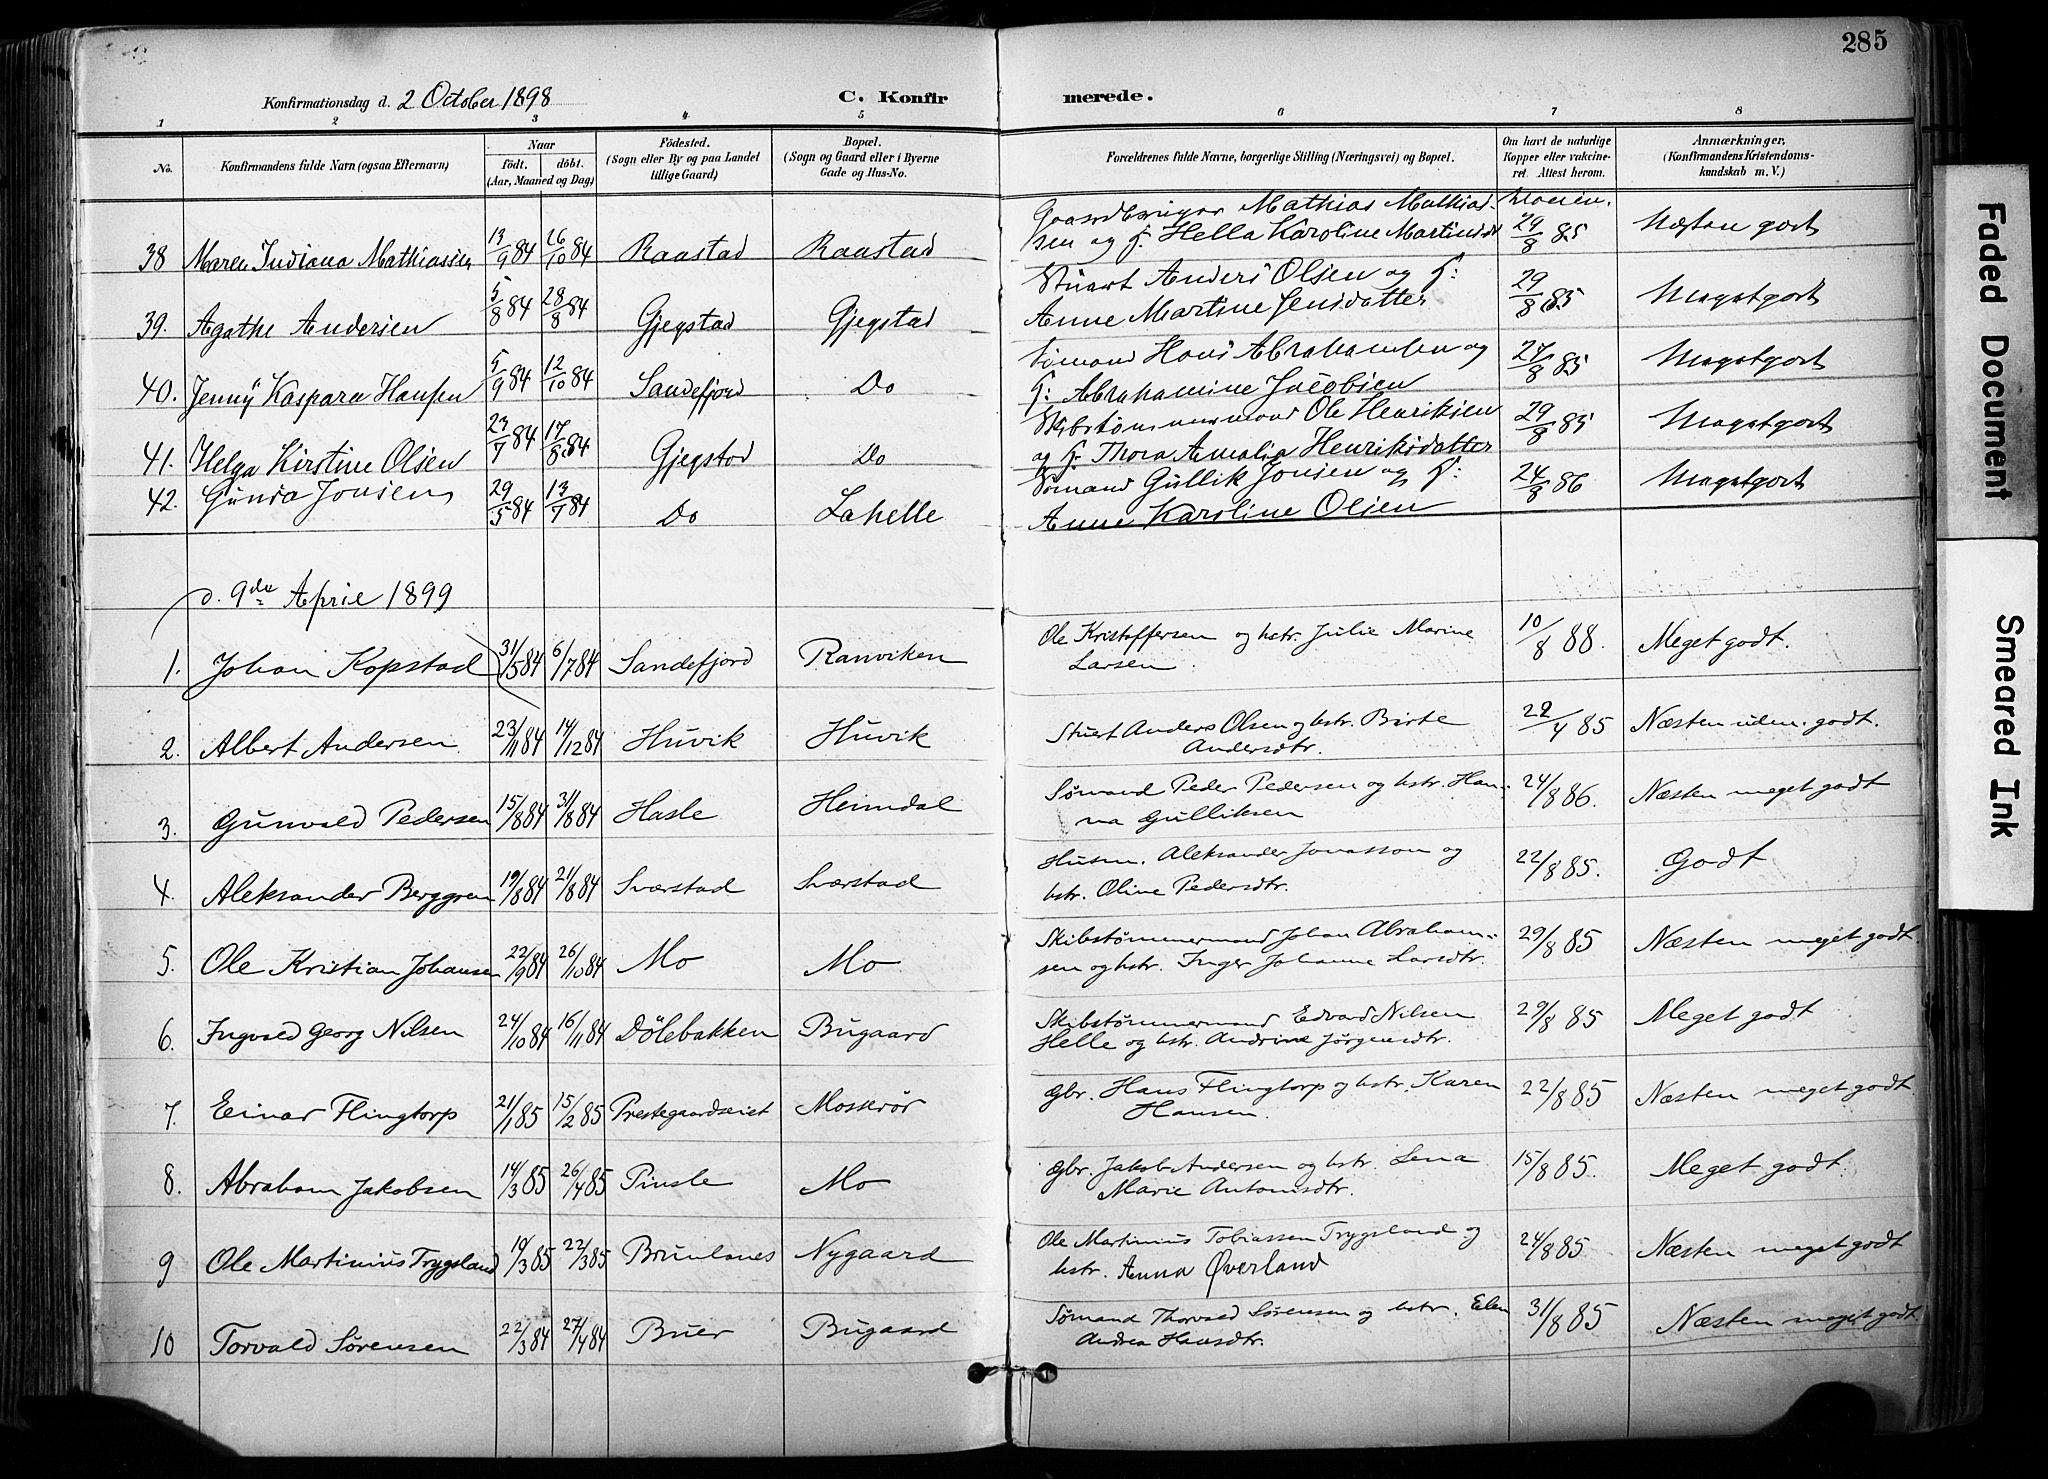 285
Konfirmationsdag d. 2 October 1898
C. Konfirmerede.
1 2 3 4 5 6 7 8
No. Konfirmandens fulde Navn (ogsaa Efternavn) Naar født. døbt. (Aar, Maaned og Dag) Fødested. (Sogn eller By og paa Landet tillige Gaard) Bopæl. (Sogn og Gaard eller i Byerne Gade og Hus-No. Forældrenes fulde Navne, borgerlige Stilling (Næringsvei) og Bopæl. Om havt de naturlige Kopper eller vakcineret. Attest herom. Anmærkninger. (Konfirmandens Kristendomskundskab m. V.)
38 Maren Indiana Mathiassen 13/9 84 26/10 84 Raastad Raastad Mathias Mathiassen og H. Hella Karoline Martinsdt 29/8 85 Næsten godt
39. Agathe Andersen 5/8 84 28/8 84 Gjegstad Gjegstad Stuert Anders Olsen og H: Anne Martine Jensdatter 29/8 85 Megetgodt
40. Jenny Kaspara Hansen 5/9 84 12/10 84 Sandefjord Do Sømand Hans Abrahamsen og H: Abrahamine Jacobsen 27/8 85 Megetgodt
41. Helga Kirstine Olsen 23/7 84 17/8 84 Gjegstad Do Skibstømmermand Ole Henriksen og H. Thora Amalia Henriksdatter 29/8 85 Megetgodt
42. Gunda Jonsen 29/5 84 13/7 84 Do Lahelle Sømand Gullik Jonsen og H: Anne Karoline Olsen 24/8 86 Megetgodt
d. 9de April 1899
1. Johan Kopstad 31/5 84 6/7 84 Sandefjord Ranviken Ole Kristoffersen og hstr. Julie Marine Larsen. 10/8 88. Meget godt.
2. Albert Andersen 23/11 84 14/12 84 Huvik Huvik Stuert Anders Olsen og hstr. Birte Andersdtr. 22/4 85 Næsten udm. godt.
3. Gunvald Pedersen 15/8 84 31/8 84 Hasle Heimdal Sømand Peder Pedersen og hstr. Hanna Gulliksen 24/8 86. Næsten meget godt
4. Aleksander Berggren 19/8 84 21/8 84 Sværstad Sværstad Husm. Aleksander Jonasson og hstr. Oline Pedersdtr. 22/8 85. Godt
5. Ole Kristian Johansen 22/9 84 26/10 84 Mo Mo Skibstømmermand Johan Abrahamsen og hstr. Inger Johanne Larsdtr. 29/8 85 Næsten meget godt.
6. Ingvald Georg Nilsen 24/10 84 16/11 84 Dölebakken Bugaard Skibstømmermand Edvard Nilsen Helle og hstr. Andrine Jørgensdtr. 29/8 85 Meget godt
7. Einar Flingtorp 21/1 85 15/2 85 Prestegaardseiet Mosserör Gbr. Hans Flingtorp og hstr. Karen Hansen. 22/8 85 Næsten meget godt
8. Abraham Jakobsen 14/3 85 26/4 85 Pinsle Mo Gbr. Jakob Andersen og hstr. Lena Marie Antonsdtr. 15/8 85. Meget godt.
9 Ole Martinius Trygsland 10/3 85 22/3 85 Brunlanes Nygaard Ole Martinius Tobiassen Trygsland og hstr. Anna Øverland 24/8 85 Næsten meget godt
10 Torvald Sørensen 22/3 84 27/4 84 Buer Bugaard Sømand Thorvald Sørensen og hstr. Elen Andrea Hansdtr. 31/8 85 Næsten meget godt.
Faded Document
Smeared Ink